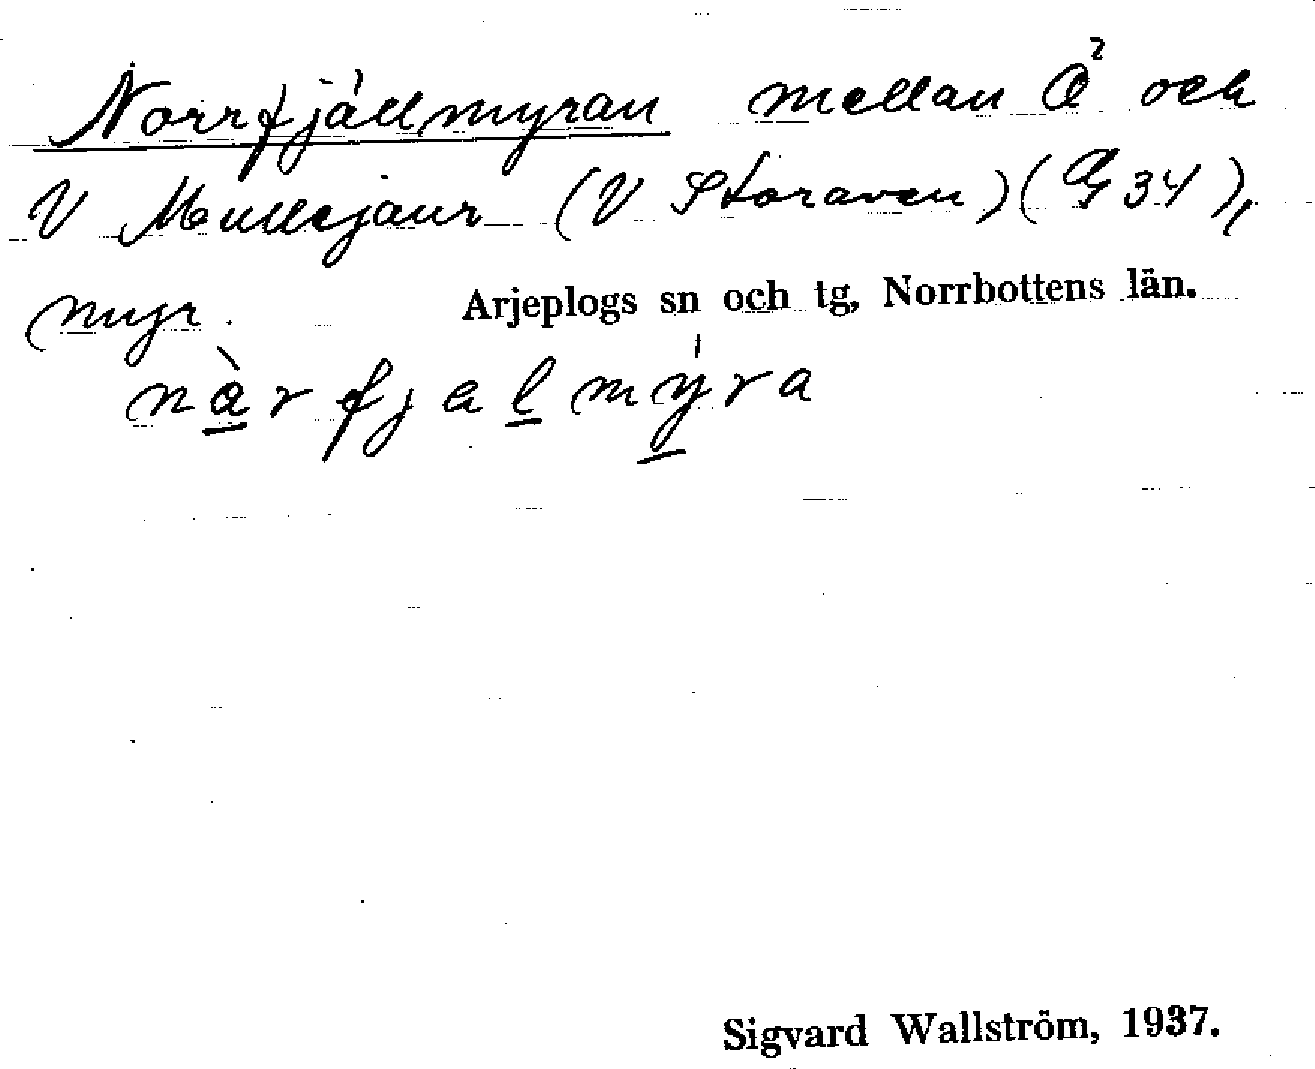 Norrfjällmyran mellan Ö och
V Mullejaur (V Storaven) (G 34),
myr. Arjeplogs sn och tg, Norrbottens län.
nàrfjalmýra
Sigvard Wallström, 1937.